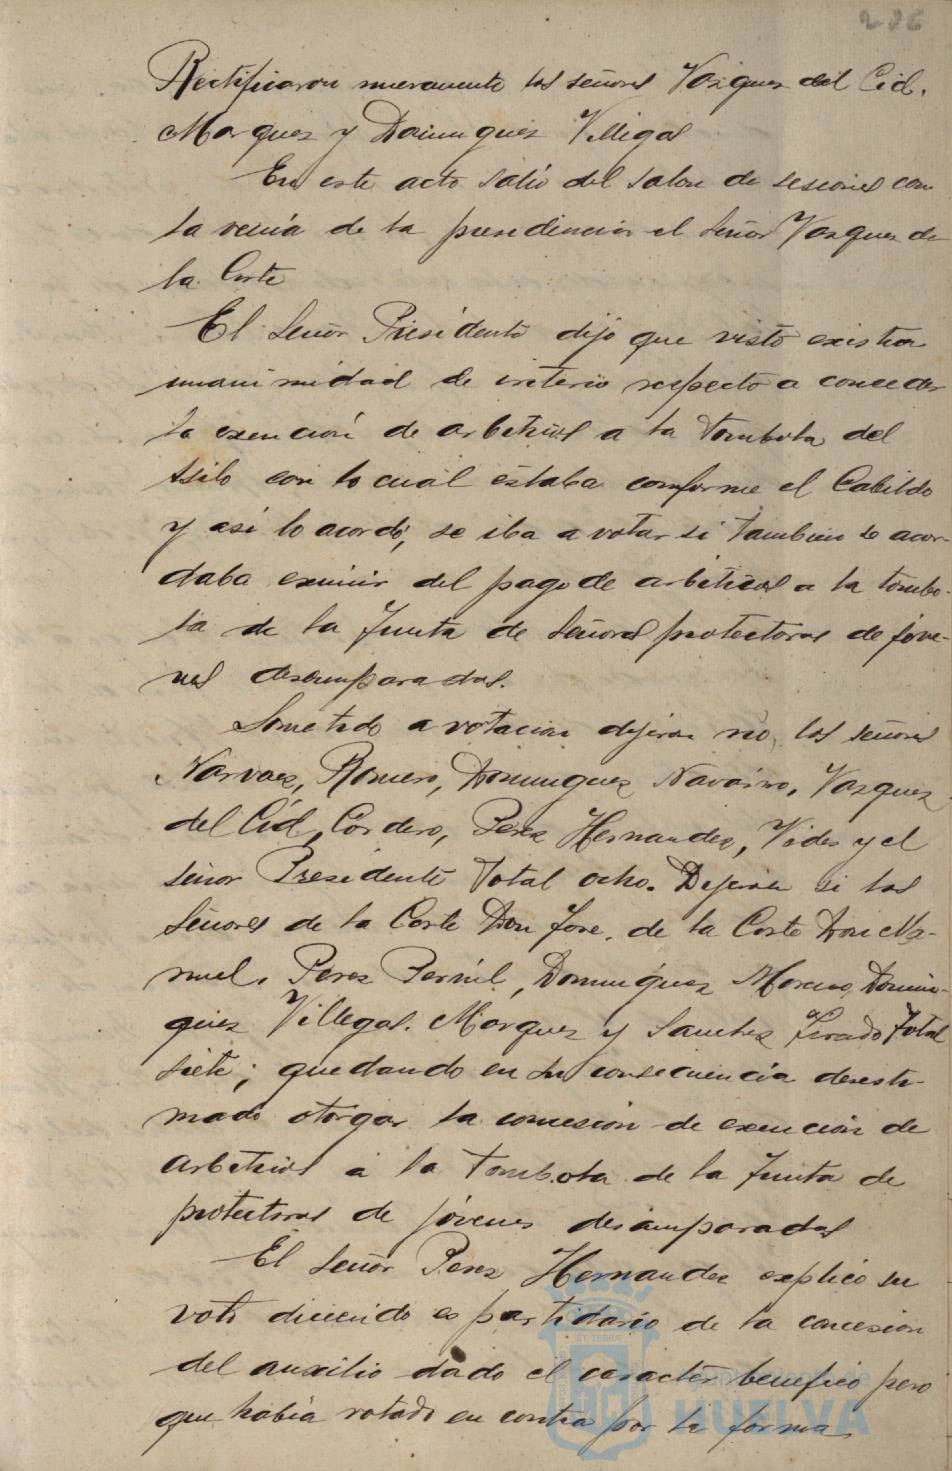 286
Rectificaron nuevamente los señores Vazquez del Cid.
Marquez y Dominguez Villegas
En este acto salió del salon de sesiones con
la venia de la presidencia el Señor Vazquez de
la Corte
El Señor Presidente dijo que visto existia
unanimidad de criterio respecto a conceder
la exención de arbitrios a la tombola del
Asilo con lo cual estaba conforme el Cabildo
y asi lo acordó, se iba a votar si tambien se acor-
daba eximir del pago de arbitrios a la tombo-
la de la Junta de Señoras protectoras de jóve-
nes desamparadas.
Sometido a votacion dijeron no, los señores
Narvaez, Romero, Dominguez Navarro, Vazquez
del Cid, Cordero, Perez Hernandez, Vides y el
señor Presidente Total ocho. Dijeron si los
Señores de la Corte Don Jose, de la Corte Don Ma-
nuel, Perez Pernil, Dominguez Moreno, Domin-
guez Villegas. Marquez y Sanchez Tirado Total
siete; quedando en su consecuencia desesti-
mado otorgar la concesion de exención de
arbitrios a la Tombola de la Junta de
protectoras de jóvenes desamparadas
El Señor Perez Hernandez explicó su
voto diciendo es partidario de la concesion
del auxilio dado el caracter benefico pero
que habia votado en contra por la forma
HUELVA